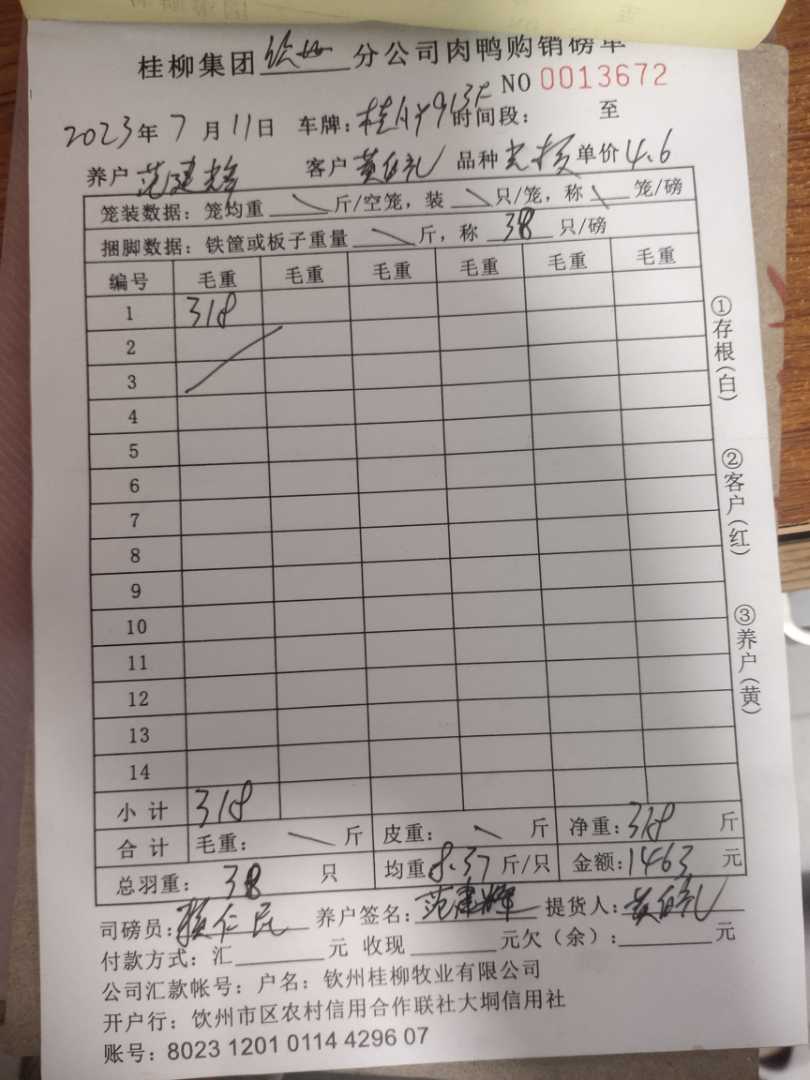 桂柳集团钦州分公司肉鸭购销磅单
NO 0013672
2023年7月11日 车牌: 时间段: 至
养户 范建辉 客户 品种 单价 4.6
笼装数据: 笼均重 斤/空笼, 装 只/笼, 称 笼/磅
捆脚数据: 铁筐或板子重量 斤, 称 38 只/磅
编号 毛重 毛重 毛重 毛重 毛重 毛重
1 318
2
3
4
5
6
7
8
9
10
11
12
13
14
小计 318
合计 毛重: 斤 皮重: 斤 净重: 318 斤
总羽重: 38 只 均重 8.37 斤/只 金额: 1463 元
司磅员: 养户签名: 范建辉 提货人:
付款方式: 汇 元 收现 元欠(余): 元
公司汇款帐号: 户名: 钦州桂柳牧业有限公司
开户行: 饮州市区农村信用合作联社大垌信用社
账号: 8023 1201 0114 4296 07
①存根(白)
②客户(红)
③养户(黄)